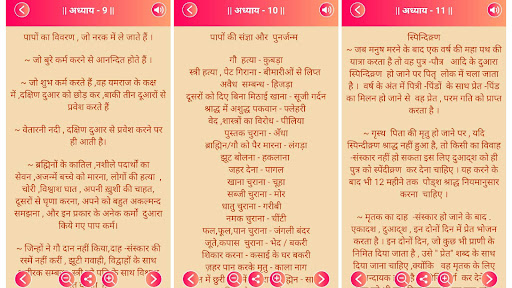 || अध्याय - 9 ||
पापों का विवरण , जो नरक में ले जाते हैं ।
~ जो बुरे कर्म करने से आनन्दित होते हैं ।
~ जो शुभ कर्म करते हैं ,वह यमराज के कक्ष
में ,दक्षिण दुआर को छोड़ कर ,बाकी तीन दुआरों से
प्रवेश करते हैं
~ वेतारनी नदी , दक्षिण दुआर से प्रवेश करने पर
ही आती है।
~ ब्रह्मिनों के कातिल ,नशीले पदार्थों का
सेवन ,अजन्में बच्चे को मारना, लोगों की हत्या ,
चोरी ,विश्वाश घात , अपनी ख़ुशी की चाहत,
दूसरों से घृणा करना, अपने को बहुत अकलमन्द
समझना , और इन प्रकार के अनेक कर्मों दुआरा
किये गए पाप कर्म।
~ जिन्हों ने गौ दान नहीं किया,दाह -संस्कार की
रस्में नहीं करीं , झूटी गवाही, विद्वाहों के साथ
|| अध्याय - 10 ||
पापों की संज्ञा और पुनर्जन्म
गौ हत्या - कुबड़ा
स्त्री हत्या , पेट गिराना - बीमारीओं से लिप्त
अवैध सम्बन्ध - हिजड़ा
दूसरों को दिए बिना मिठाई खाना - सूजी गर्दन
श्राद्ध में अशुद्ध पकवान - फ्लेहरी
वेद ,शास्त्रों का विरोध - पीलिया
पुस्तक चुराना - अँधा
ब्राह्मिन/गौ को पैर मारना - लंगड़ा
झूट बोलना - हकलाना
जहर देना - पागल
खाना चुराना - चूहा
सब्जी चुराना - मोर
धातु चुराना - गरीबी
नमक चुराना - चींटी
फल,फूल,पान चुराना - जंगली बंदर
जूते,कपास चुराना - भेड / बकरी
शिकार करना - कसाई के घर बकरी
ज़हर पान करके मृतु - काला नाग
|| अध्याय - 11 ||
स्पिन्दिक्र्ण
~ जब मनुष्य मरने के बाद एक वर्ष की महा पथ की
यात्रा करता है तो वह पुत्र -पौत्र आदि के दुआरा
स्पिन्दिक्र्ण हो जाने पर पितृ लोक में चला जाता
है । वर्ष के अंत में पित्री -पिंडों के साथ प्रेत -पिंड
का मिलन हो जाने से वह प्रेत , परम गति को प्राप्त
करता है ।
~ गृस्थ पिता की मृतु हो जाने पर , यदि
स्पिन्दीक्र्ण श्राद्ध नहीं हुआ है, तो किसी का विवाह
-संस्कार नहीं हो सकता इस लिए दुआद्श को ही
पुत्र को स्पेंदीक्र्ण कर देना चाहिए । यह करने के
बाद भी 12 महीने तक पोडृश श्राद्ध नियमानुसार
करना चाहिए ।
~ मृतक का दाह -संस्कार हो जाने के बाद .
एकादश , दुआद्श , इन दोनों दिन में प्रेत भोजन
करता है । इन दोनों दिन, जो कुछ भी प्राणी के
निमित दिया जाता है , उसे " प्रेत" शब्द के साथ
दिया जाना चाहिए ,क्योंकि वह मृतक के लिए